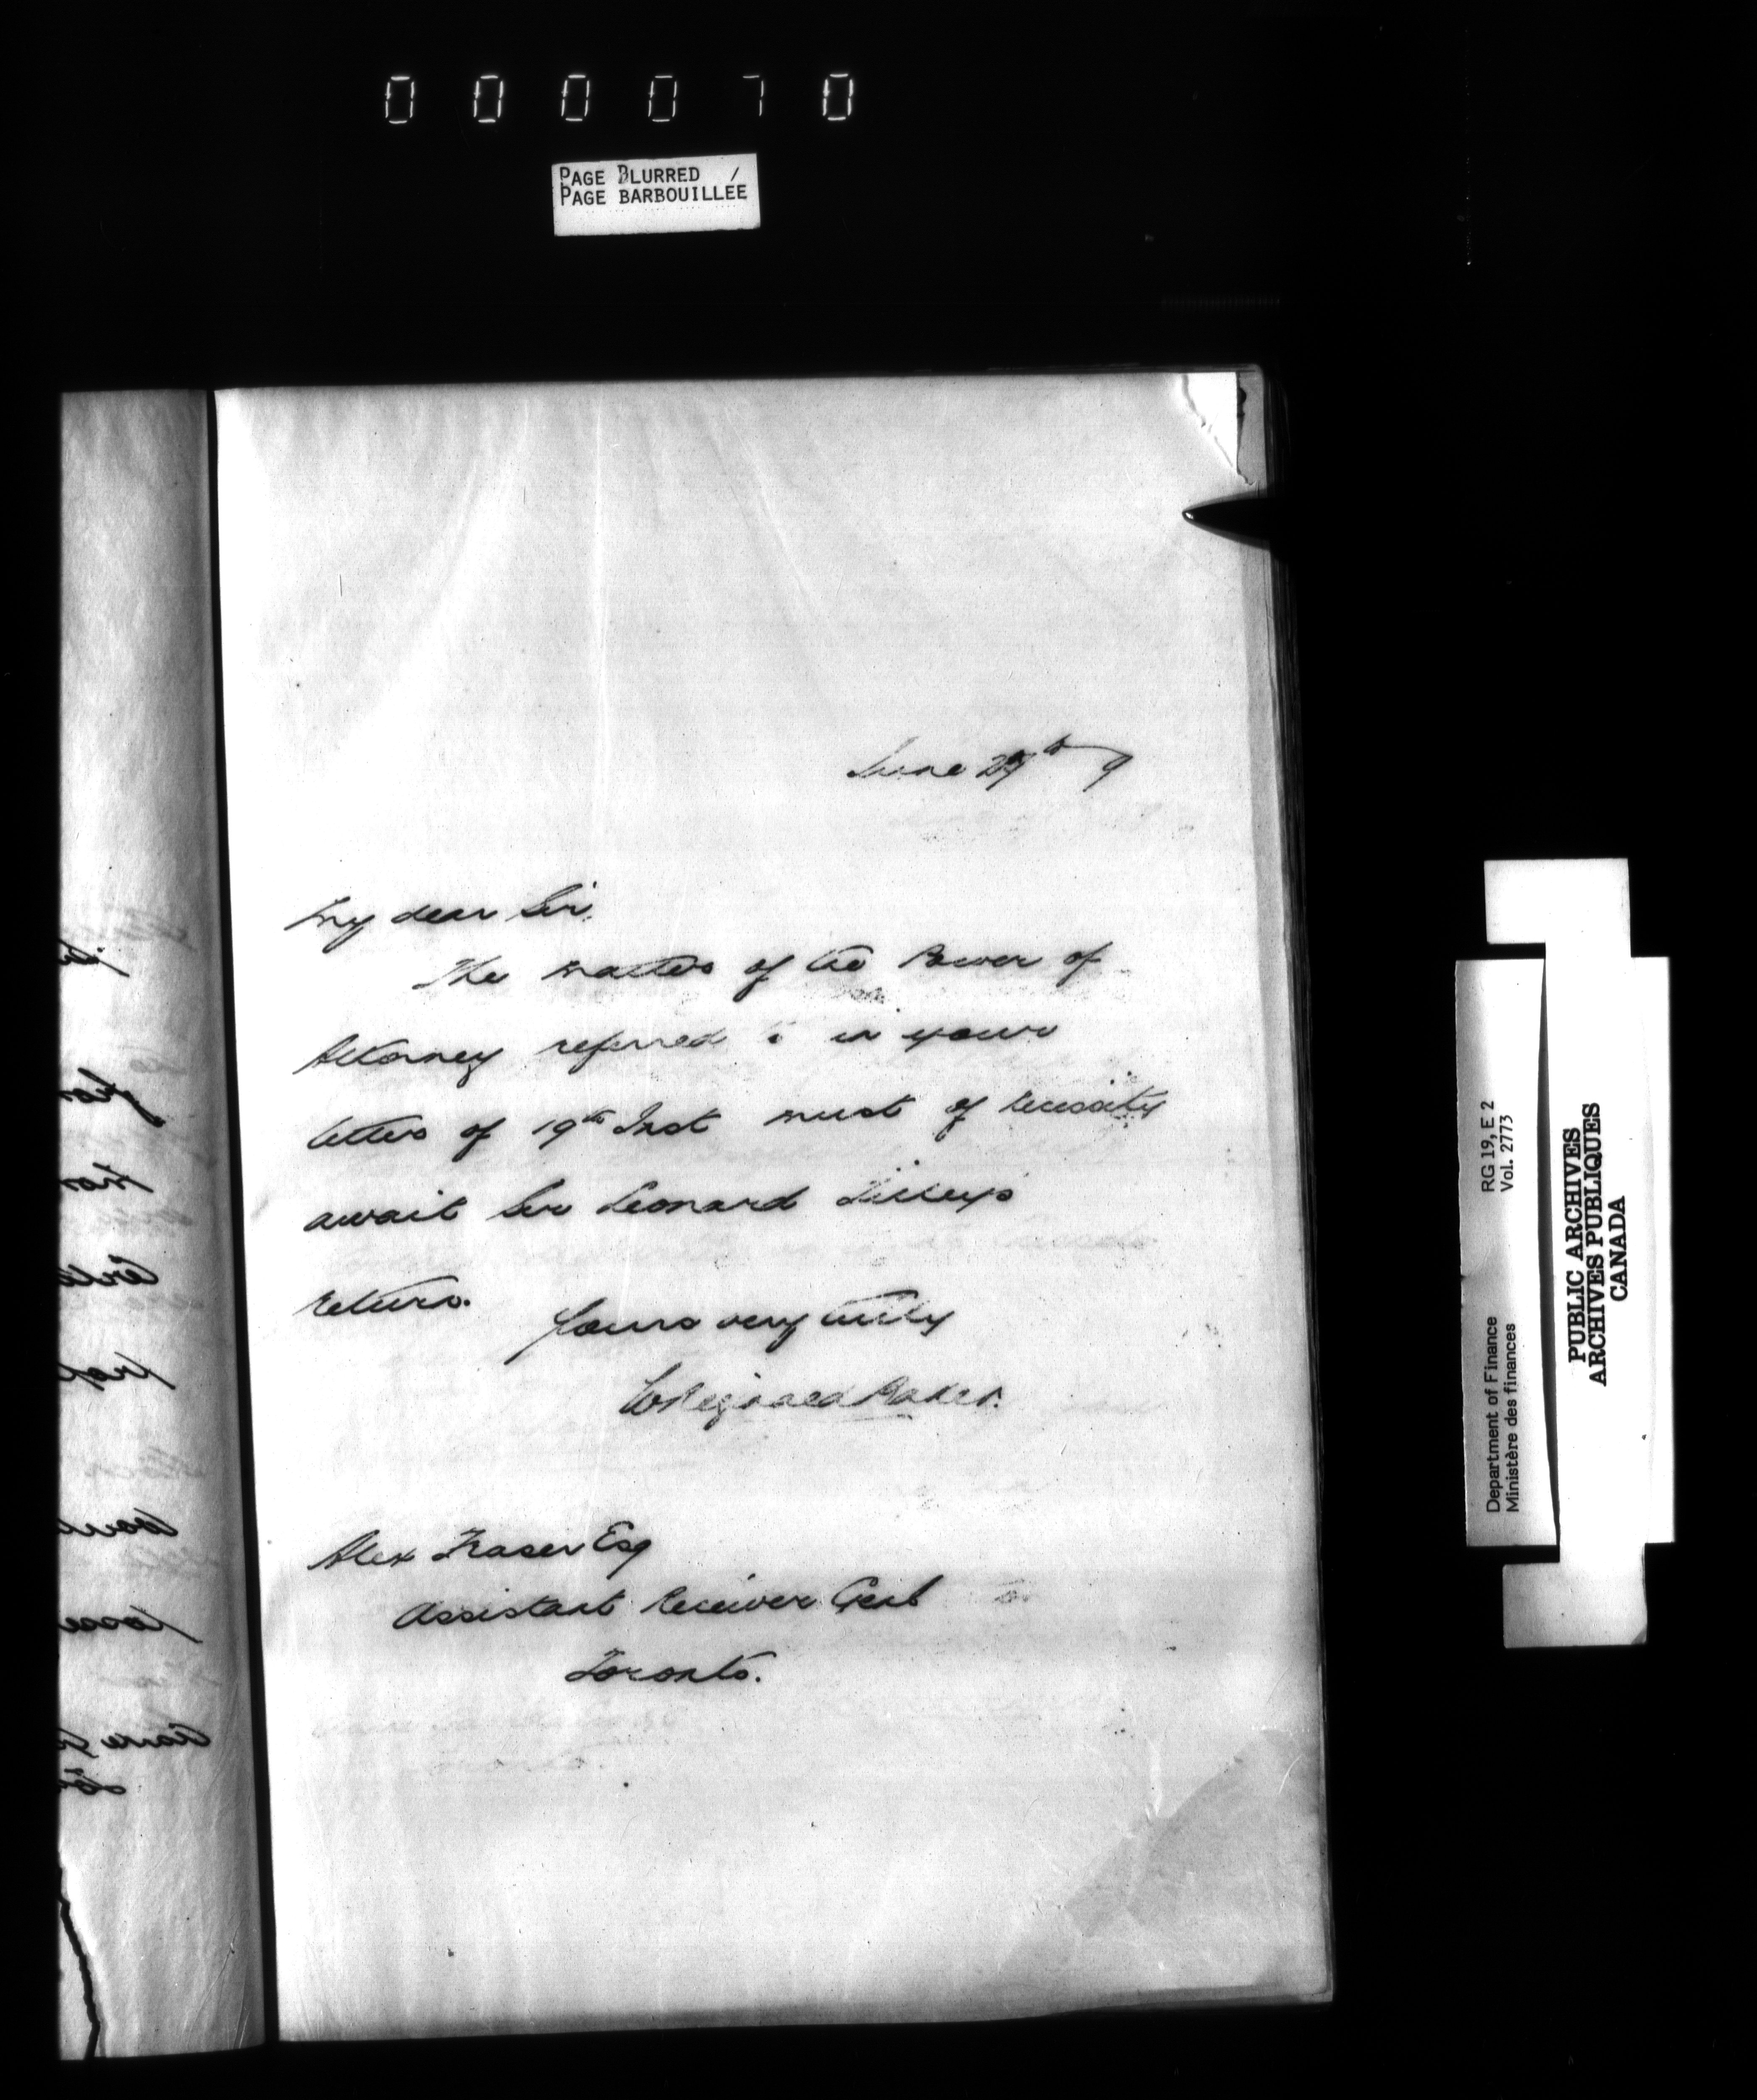 000070
PAGE BLURRED /
PAGE BARBOUILLÉE
June 27th 9
My dear Sir,
The matter of the Power of
Attorney referred to in your
letter of 19th Inst must of necessity
await Sir Leonard Tilley's
return.
Yours very truly
W Reginald Baker.
Alex Fraser Esq
Assistant Receiver Genl
Toronto.
Department of Finance RG 19, E 2
Ministère des finances Vol. 2773
PUBLIC ARCHIVES
ARCHIVES PUBLIQUES
CANADA